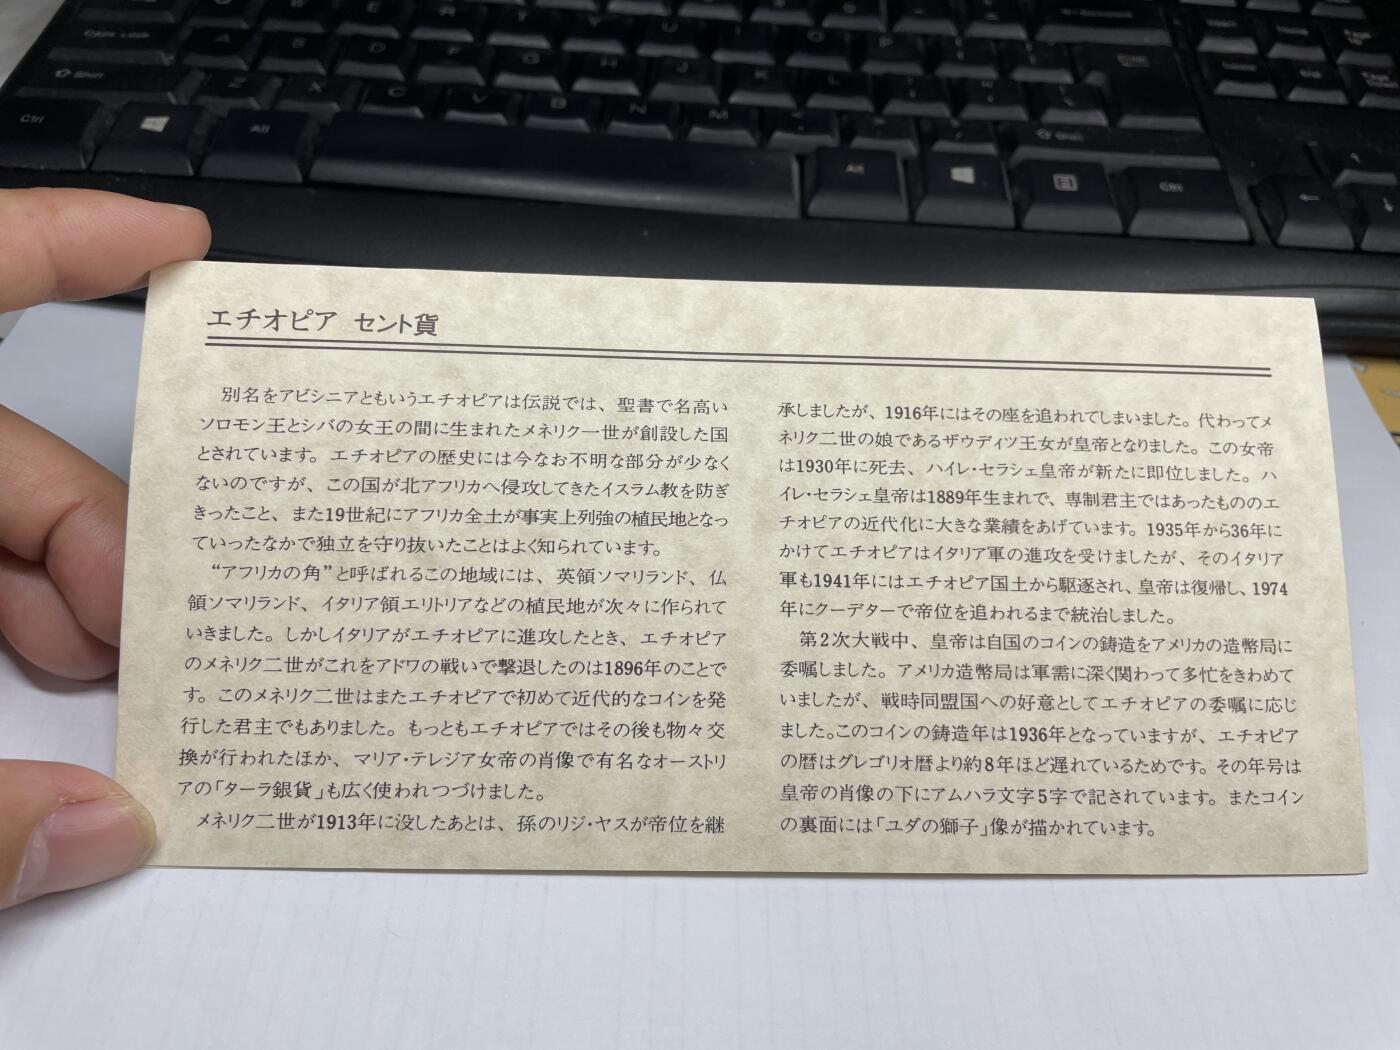 エチオピア セント貨
別名をアビシニアともいうエチオピアは伝説では、聖書で名高い
ソロモン王とシバの女王の間に生まれたメネリク一世が創設した国
とされています。エチオピアの歴史には今なお不明な部分が少なく
ないのですが、この国が北アフリカへ侵攻してきたイスラム教を防ぎ
きったこと、また19世紀にアフリカ全土が事実上列強の植民地となっ
ていったなかで独立を守り抜いたことはよく知られています。
“アフリカの角”と呼ばれるこの地域には、英領ソマリランド、仏
領ソマリランド、イタリア領エリトリアなどの植民地が次々に作られて
いきました。しかしイタリアがエチオピアに進攻したとき、エチオピア
のメネリク二世がこれをアドワの戦いで撃退したのは1896年のことで
す。このメネリク二世はまたエチオピアで初めて近代的なコインを発
行した君主でもありました。もっともエチオピアではその後も物々交
換が行われたほか、マリア・テレジア女帝の肖像で有名なオーストリ
アの「ターラ銀貨」も広く使われつづけました。
メネリク二世が1913年に没したあとは、孫のリジ・ヤスが帝位を継
承しましたが、1916年にはその座を追われてしまいました。代わってメ
ネリク二世の娘であるザウディツ王女が皇帝となりました。この女帝
は1930年に死去、ハイレ・セラシェ皇帝が新たに即位しました。ハ
イレ・セラシェ皇帝は1889年生まれで、専制君主ではあったもののエ
チオピアの近代化に大きな業績をあげています。1935年から36年に
かけてエチオピアはイタリア軍の進攻を受けましたが、そのイタリア
軍も1941年にはエチオピア国土から駆逐され、皇帝は復帰し、1974
年にクーデターで帝位を追われるまで統治しました。
第2次大戦中、皇帝は自国のコインの鋳造をアメリカの造幣局に
委嘱しました。アメリカ造幣局は軍需に深く関わって多忙をきわめて
いましたが、戦時同盟国への好意としてエチオピアの委嘱に応じ
ました。このコインの鋳造年は1936年となっていますが、エチオピア
の暦はグレゴリオ暦より約8年ほど遅れているためです。その年号は
皇帝の肖像の下にアムハラ文字5字で記されています。またコイン
の裏面には「ユダの獅子」像が描かれています。